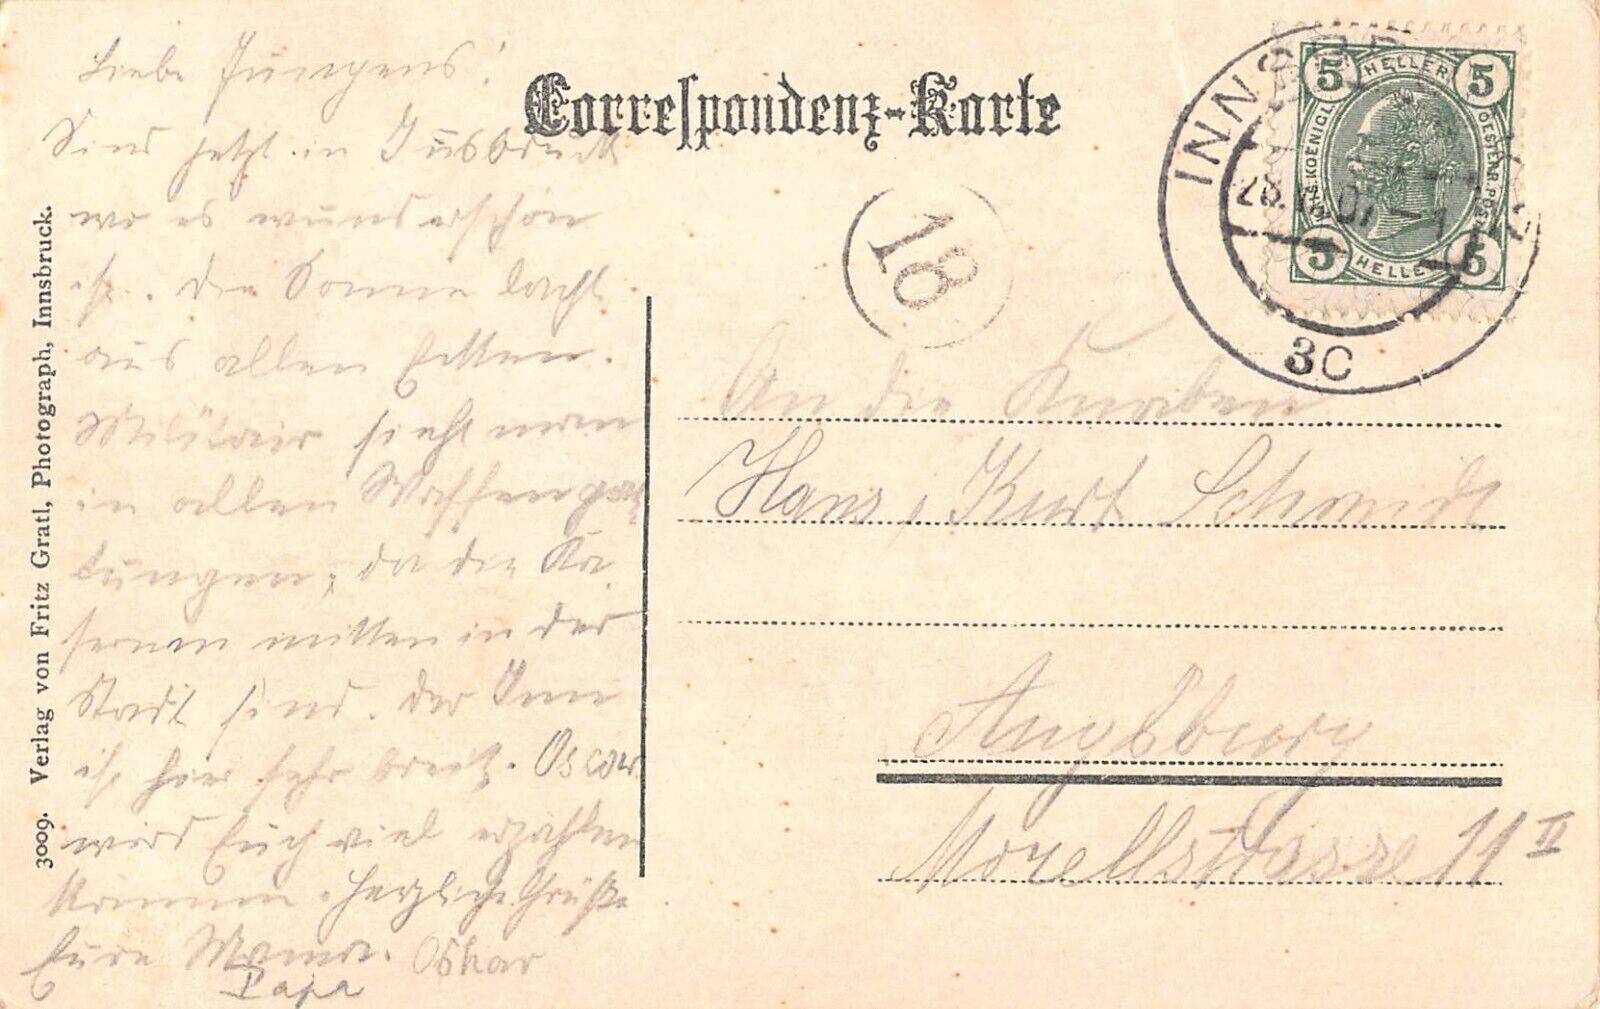 Liebe Jungens!
Sind jetzt in Insbruck
wo es wunderschön
ist. Die Sonne lacht
aus allen Ecken.
Militair sieht man
in allen Waffengat
tungen, da die Ka
sernen mitten in der
Stadt sind. Der Inn
ist hier sehr breit. Oscar
wird Euch viel erzählen
können. Herzliche Grüße
Eure Mama. Oskar
Papa
Correspondenz-Karte
18
INNSBRUCK
3C
5 HELLER 5
KAIS. KOENIGL.
OESTERR. POST
5 HELLER 5
An die Knaben
Hans, Kurt Schmidt
Augsburg
Morellstrasse 11 II
3009. Verlag von Fritz Gratl, Photograph, Innsbruck.